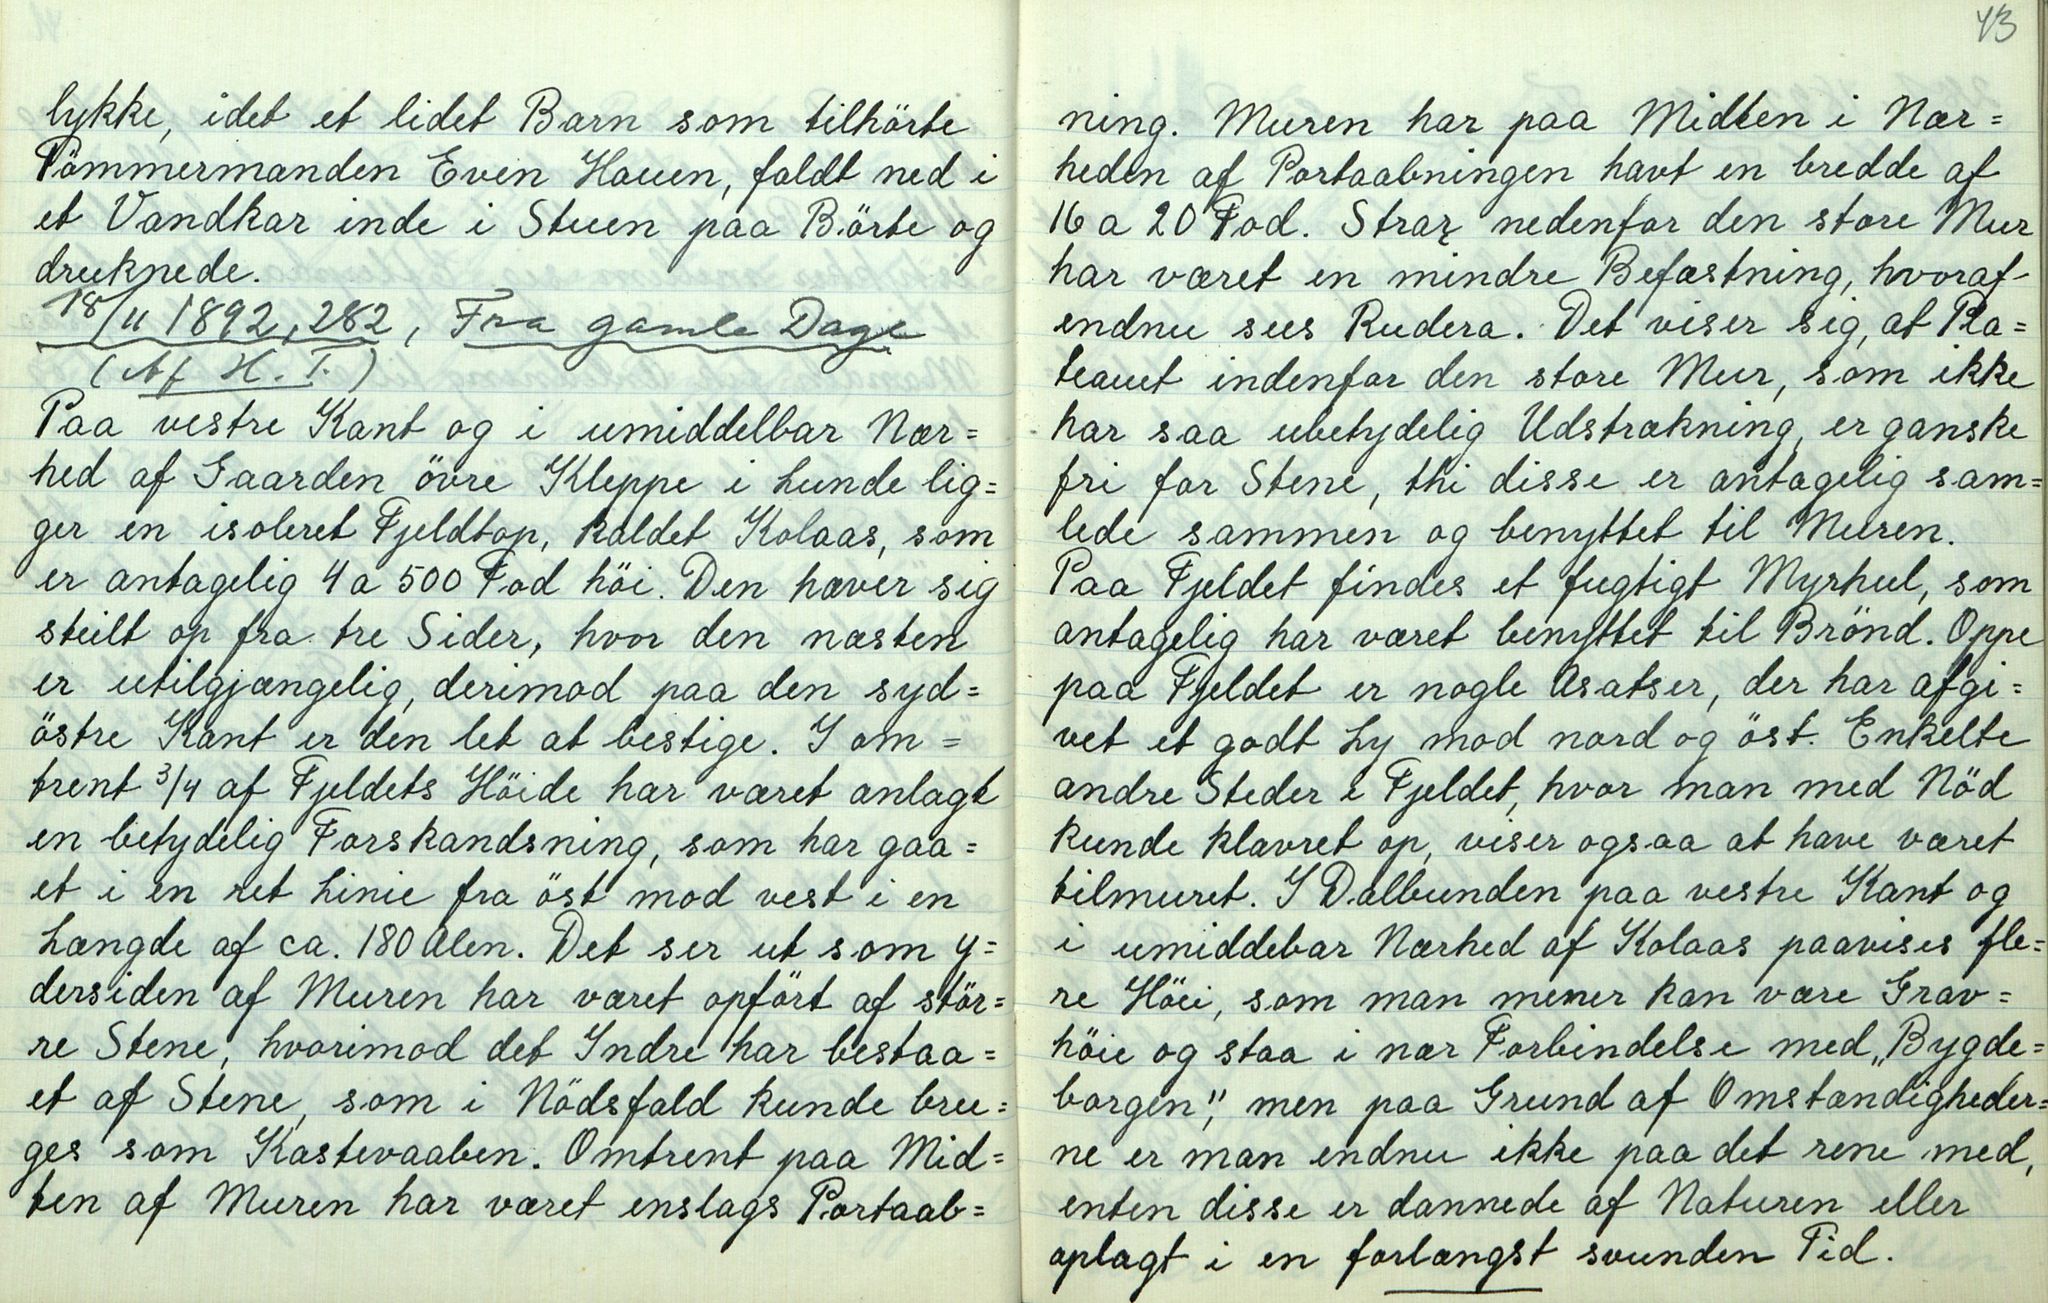 lykke, idet et lidet Barn som tilhörte
Tömmermanden Even Hauen, faldt ned i
et Vandkar inde i Stuen paa Börte og
druknede.
18/11 1892, 282, Fra gamle Dage
(Af H. T.)
Paa vestre Kant og i umiddelbar Nær=
hed af Gaarden övre Kleppe i Lunde lig=
ger en isoleret Fjeldtop, kaldet Kolaas, som
er antagelig 4 a 500 Fod höi. Den hæver sig
steilt op fra tre Sider, hvor den næsten
er utilgjængelig, derimod paa den syd=
östre Kant er den let at bestige. I om=
trent 3/4 af Fjeldets Höide har været anlagt
en betydelig Forskandsning, som har gaa=
et i en ret Linie fra öst mod vest i en
Længde af ca. 180 Alen. Det ser ut som y=
dersiden af Muren har været opfört af stör=
re Stene, hvorimod det Indre har bestaa=
et af Stene, som i Nödsfald kunde bru=
ges som Kastevaaben. Omtrent paa Mid=
ten af Muren har været enslags Portaab=
43
ning. Muren har paa Midten i Nær=
heden af Portaabningen havt en bredde af
16 a 20 Fod. Strax nedenfor den store Mur
har været en mindre Befæstning, hvoraf
endnu sees Rudera. Det viser sig, at Pla=
teauet indenfor den store Mur, som ikke
har saa ubetydelig Udstrækning, er ganske
fri for Stene, thi disse er antagelig sam=
lede sammen og benyttet til Muren.
Paa Fjeldet findes et fugtigt Myrhul, som
antagelig har været benyttet til Brönd. Oppe
paa Fjeldet er nogle Asatser, der har afgi=
vet et godt Ly mod nord og öst. Enkelte
andre Steder i Fjeldet, hvor man med Nöd
kunde klavret op, viser ogsaa at have været
tilmuret. I Dalbunden paa vestre Kant og
i umiddebar Nærhed af Kolaas paavises fle=
re Höie, som man mener kan være Grav=
höie og staa i nær Forbindelse med „Bygde=
borgen", men paa Grund af Omstændigheder=
ne er man endnu ikke paa det rene med,
enten disse er dannede af Naturen eller
oplagt i en forlængst svunden Tid.